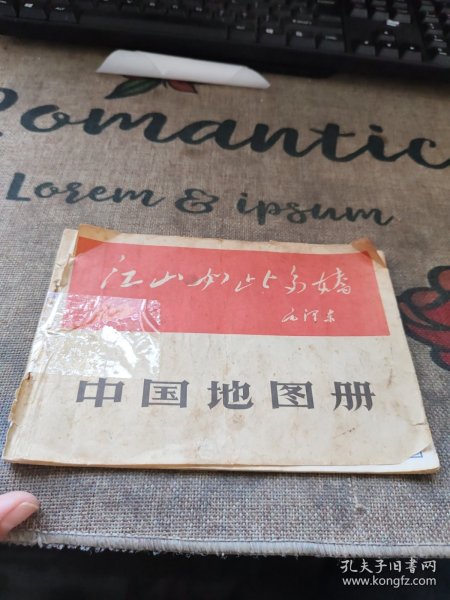 Romantic
Lorem & ipsum
江山如此多娇
毛泽东
中国地图册
孔夫子旧书网
www.kongfz.com